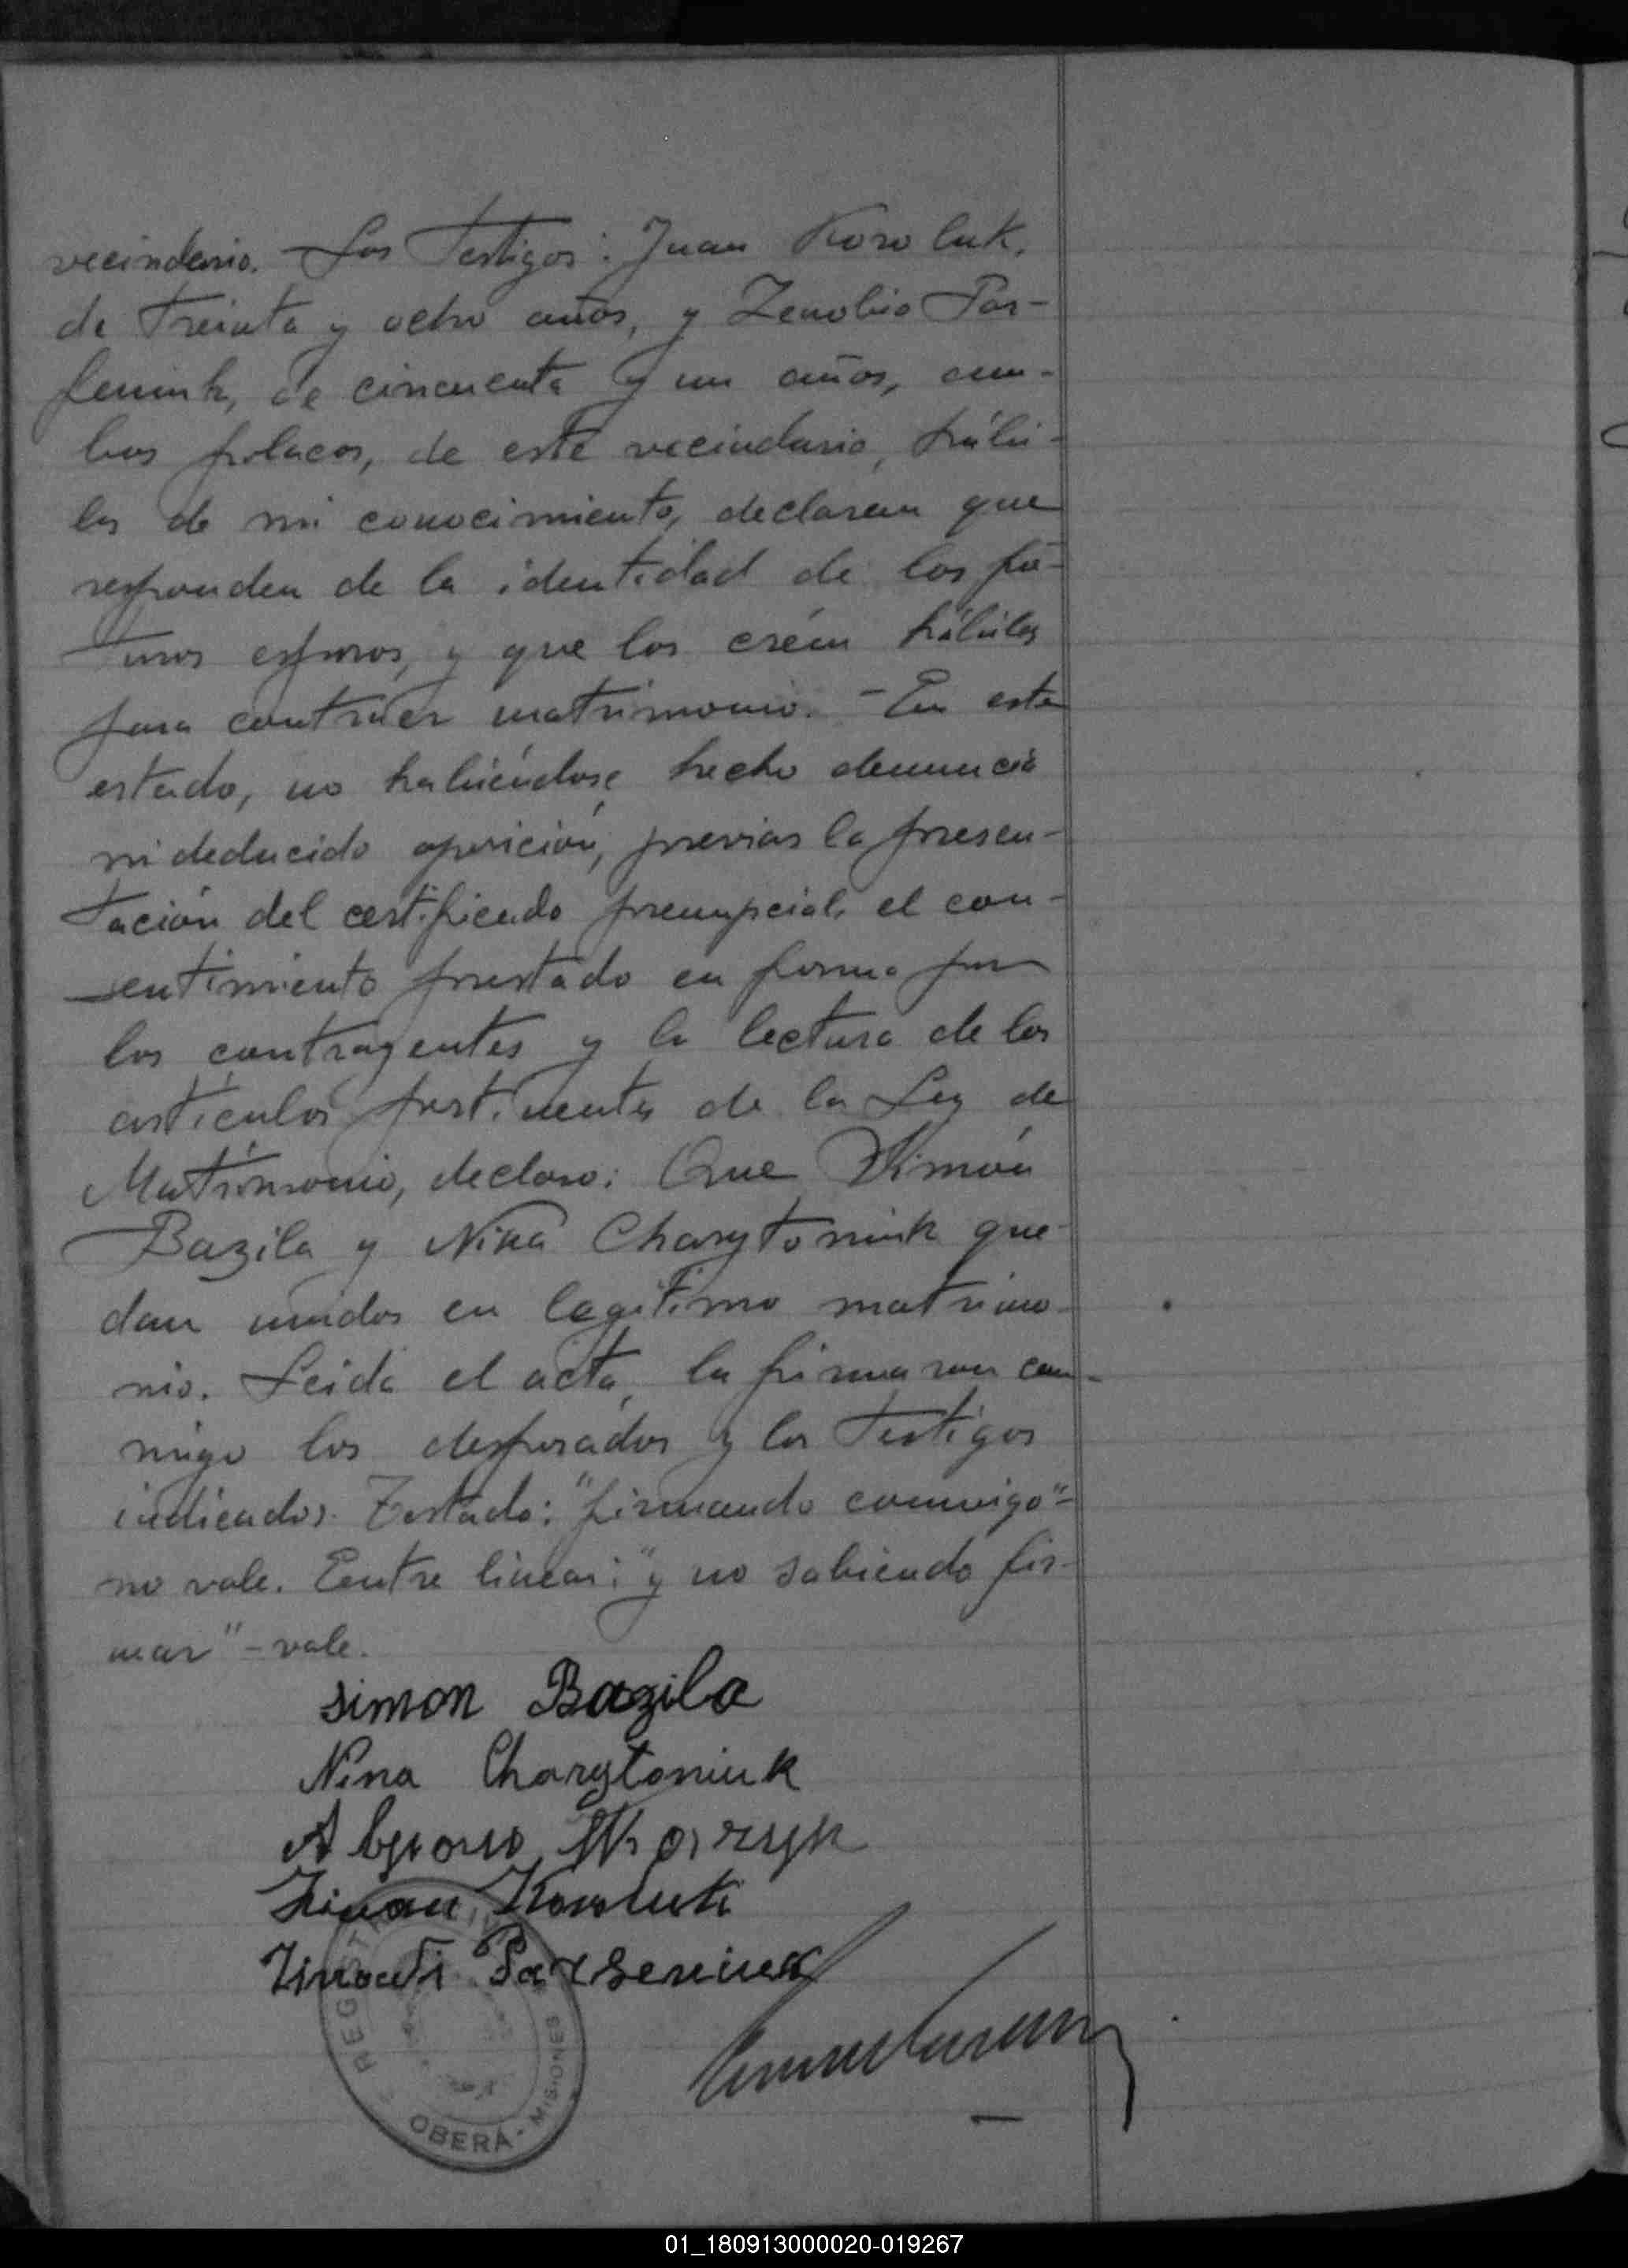 vecindario. Los Testigos: Juan Koroluk,
de treinta y ocho años, y Zenobio Par-
feniuk, de cincuenta y un años, am-
bos polacos, de este vecindario, hábi-
les de mi conocimiento, declaran que
responden de la identidad de los fu-
turos esposos, y que los creén hábiles
para contraer matrimonio. - En este
estado, no habiéndose hecho denuncia
ni deducido oposición, previas la presen-
tación del certificado prenupcial, el con-
sentimiento prestado en forma por
los contrayentes y la lectura de los
artículos pertinentes de la Ley de
Matrimonio, declaro: Que Simón
Bazila y Nina Charytoniuk que-
dan unidos en legítimo matrimo-
nio. Leida el acta, la firmaron con-
migo los desposados y los testigos
indicados. Testado: "firmando conmigo"-
no vale. Entre lineas: "y no sabiendo fir-
mar" - vale.
simon Bazila
Nina Charytoniuk
Koroluk
Parfeniuk
REGISTRO
OBERÁ - MISIONES
01_180913000020-019267